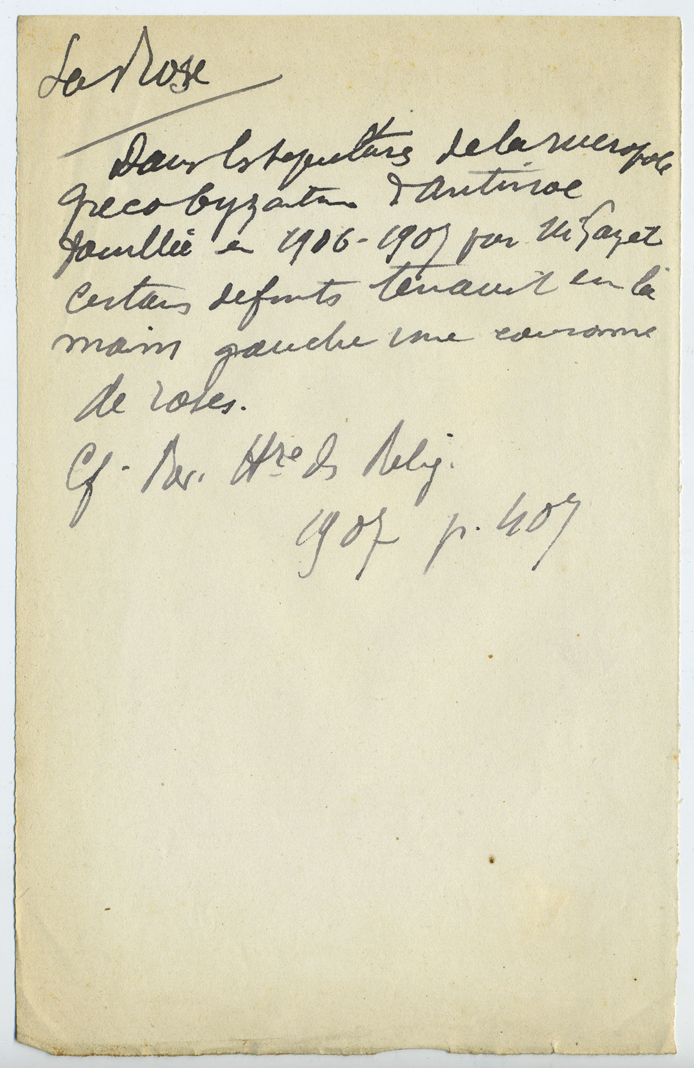 La Rose
Dans les sepultures de la necropole
greco byzantine d'Antinoe
fouillée en 1906-1907 par Mr Gayet
certains defunts tenaient en la
main gauche une couronne
de roses.
Cf. Rev. Hre ds Relig.
1907 p. 407